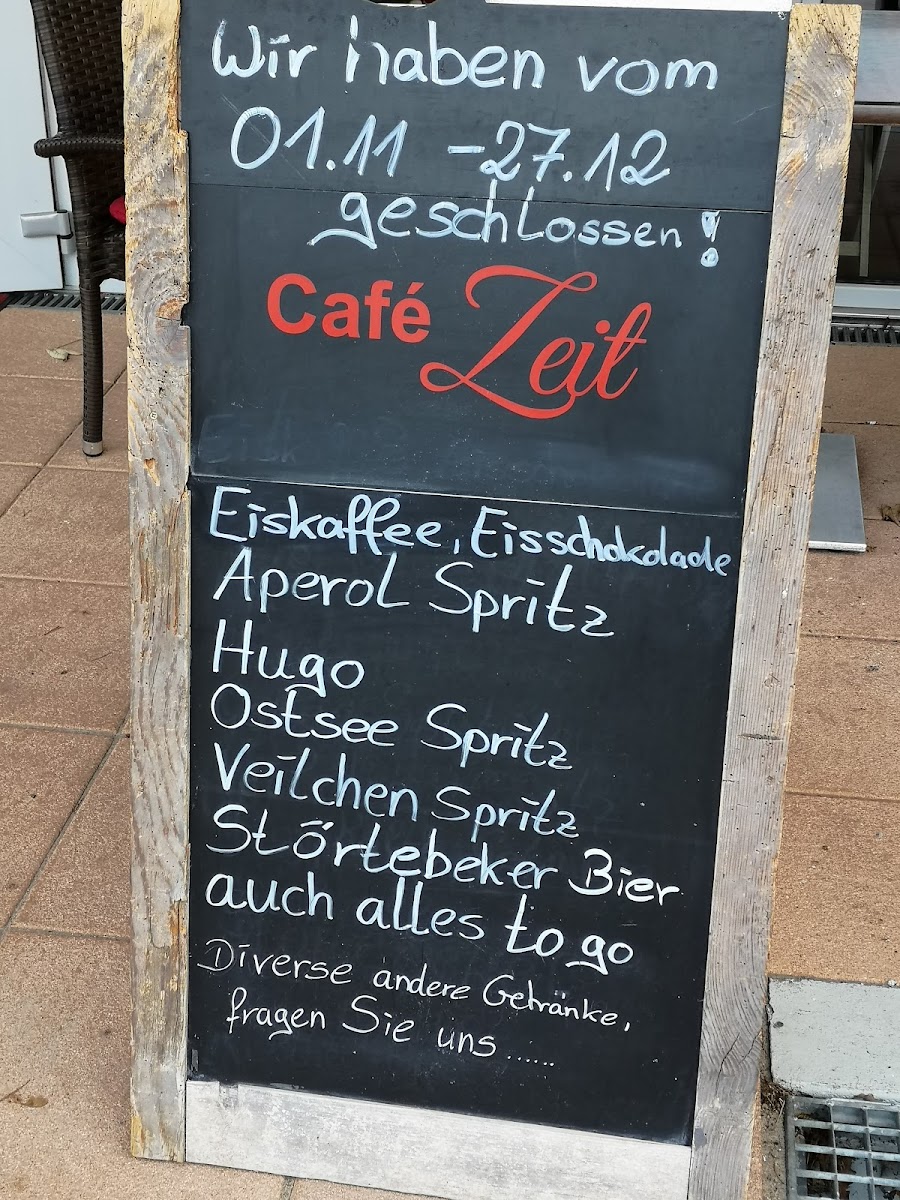 Wir haben vom
01.11 - 27.12
geschlossen!
Café Zeit
Eiskaffee, Eisschokolade
Aperol Spritz
Hugo
Ostsee Spritz
Veilchen Spritz
Störtebeker Bier
auch alles to go
Diverse andere Getränke,
fragen Sie uns......